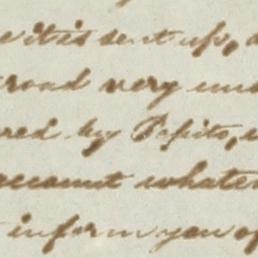 it is sent up,
road very
red by Pepito,
account whatev
inform you of